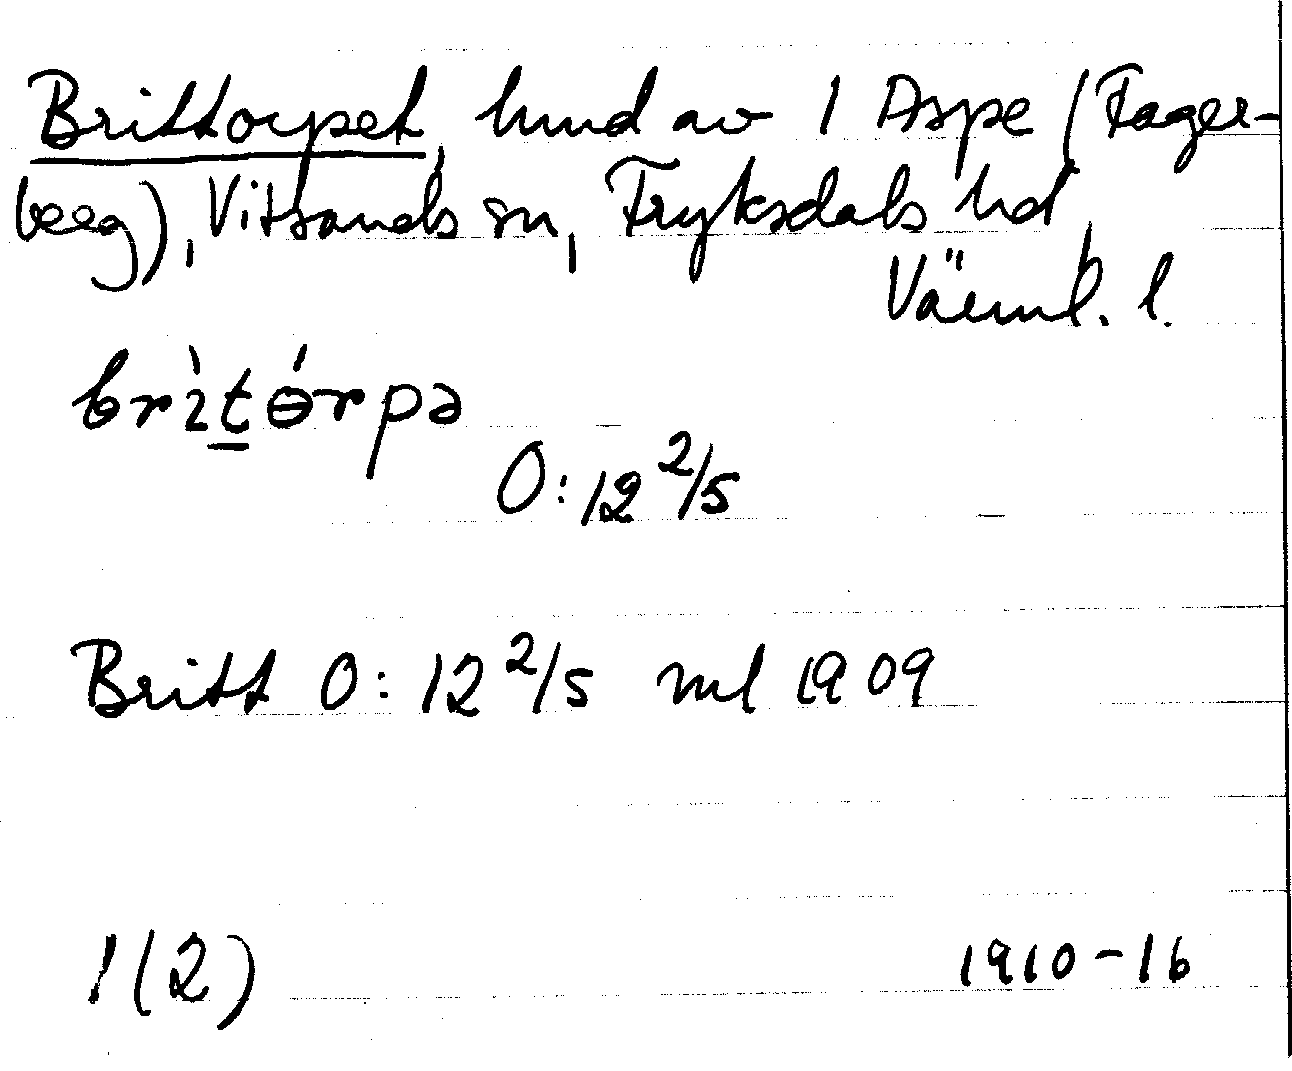 Brittorpet, hmd av 1 Aspe (Fager-
berg), Vitsands sn, Fryksdals hd,
Värml. l.
brìtɵ́rpə
O: 12 2/5
Britt O: 12 2/5 ml 1909
1(2) 1910-16